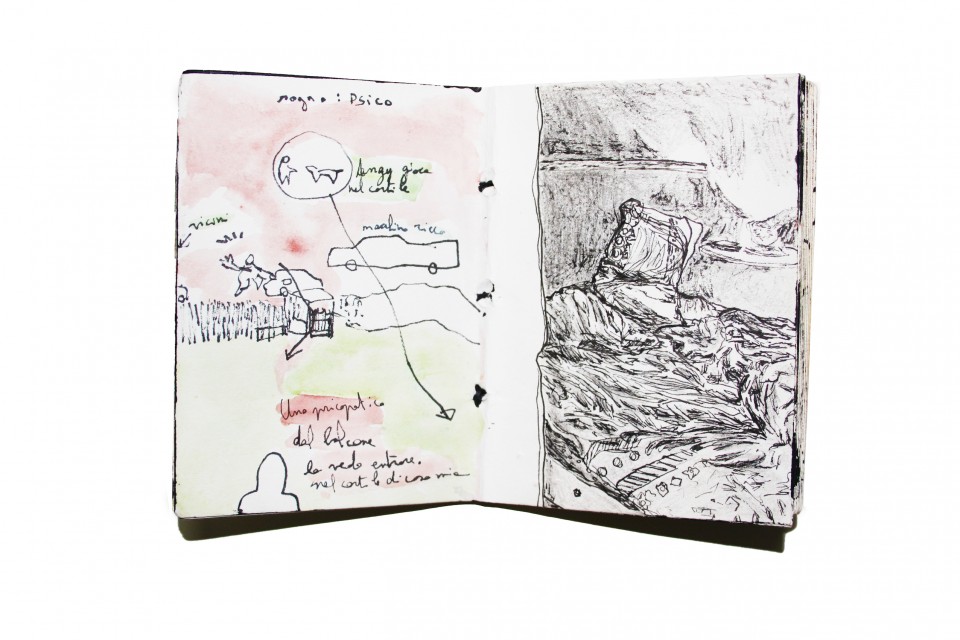 sogno : Psico
Angy gioca
nel cortile
vicini
macchina
Una psicopatica
dal balcone
la vedo entrare.
nel cortile di casa mia